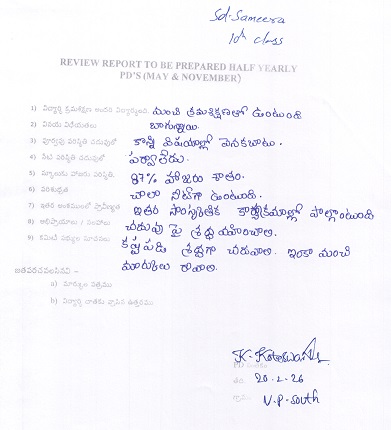 Sd-Sameera
10th class
REVIEW REPORT TO BE PREPARED HALF YEARLY
PD'S (MAY & NOVEMBER)
1) విద్యార్థి క్రమశిక్షణ మంచి క్రమశిక్షణతో ఉంటుంది
2) వినయ విధేయతలు బాగున్నాయి.
3) పూర్వపు పరిస్థితి చదువులో కొన్ని విషయాల్లో వెనకబాటు.
4) నేటి పరిస్థితి చదువులో పర్వాలేదు.
5) స్కూలుకు హాజరు పరిస్థితి. 87% హాజరు శాతం.
6) పరిశుభ్రత చాలా నీట్‌గా ఉంటుంది.
7) ఇతర అంశములలో ప్రావీణ్యత ఇతర సాంస్కృతిక కార్యక్రమాల్లో పాల్గొంటుంది
8) అభిప్రాయాలు / సలహాలు చదువు పై శ్రద్ధ వహించాలి.
9) కమిటీ సభ్యుల సూచనలు కష్టపడి శ్రద్ధగా చదవాలి. ఇంకా మంచి
మార్కులు రావాలి.
జతపరచవలసినవి -
a) మార్కుల పత్రము
b) విద్యార్థి దాతకు వ్రాసిన ఉత్తరము
తేది: 20-2-26
V.P-South